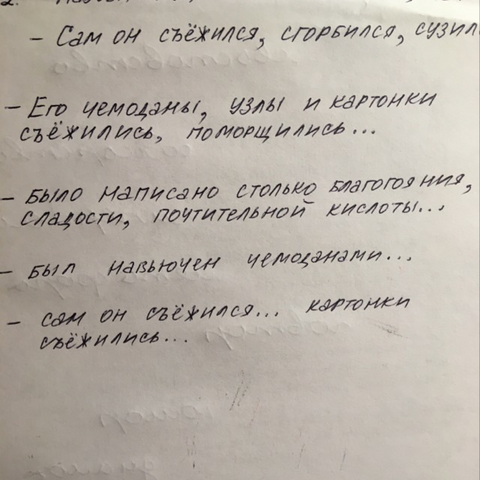 2.
– Сам он съёжился, сгорбился, сузил
– Его чемоданы, узлы и картонки
съёжились, поморщились...
– было написано столько благогояния,
сладости, почтительной кислоты...
– был навьючен чемоданами...
– сам он съёжился... картонки
съёжились...